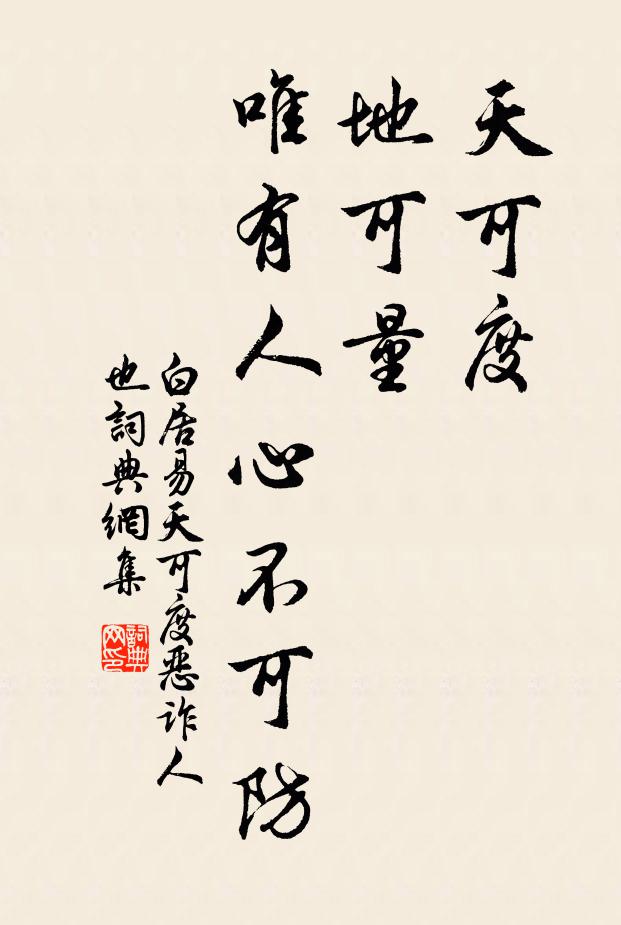 天可度
地可量
唯有人心不可防
白居易天可度惡詐人
也詞典網集
詞典
网印